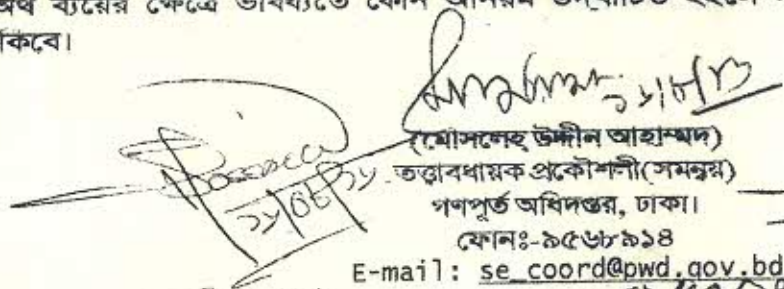 অর্থ ব্যয়ের ক্ষেত্রে ভবিষ্যতে কোন অনিয়ম উদঘাটিত হইলে
থাকিবে।
২১/০৮/১৩
(মোসলেহ উদ্দীন আহাম্মদ)
তত্ত্বাবধায়ক প্রকৌশলী(সমন্বয়)
গণপূর্ত অধিদপ্তর, ঢাকা।
ফোনঃ-৯৫৬৮৯১৪
E-mail: se_coord@pwd.gov.bd